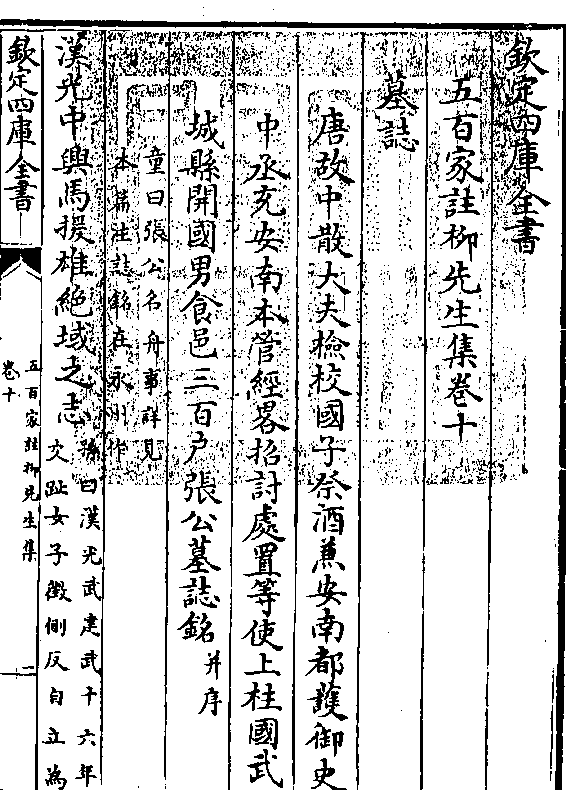 欽定四庫全書
五百家註柳先生集卷十
墓誌
唐故中散大夫檢校國子祭酒兼安南都護御史
中丞充安南本管經畧招討處置等使上柱國武
城縣開國男食邑三百户張公墓誌銘并序
童曰張公名舟事詳見
本篇注誌銘在永州作
漢光中興馬援雄絶域之志
孫曰漢光武建武十六年
交趾女子徵側反自立為
欽定四庫全書
五百家註柳先生集
卷十
一